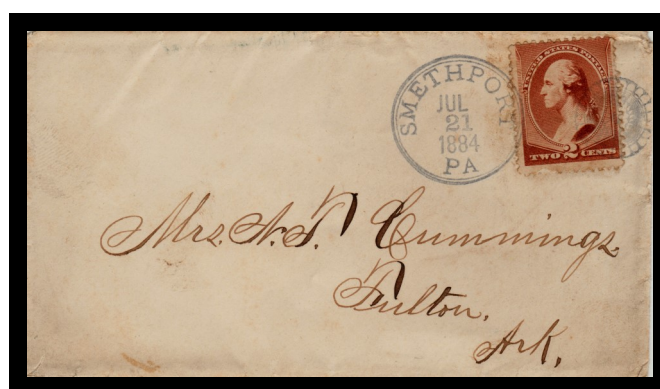 SMETHPORT
JUL
21
1884
PA
UNITED STATES POSTAGE
TWO 2 CENTS
Mrs. N. T. Cummings
Fulton.
Ark,